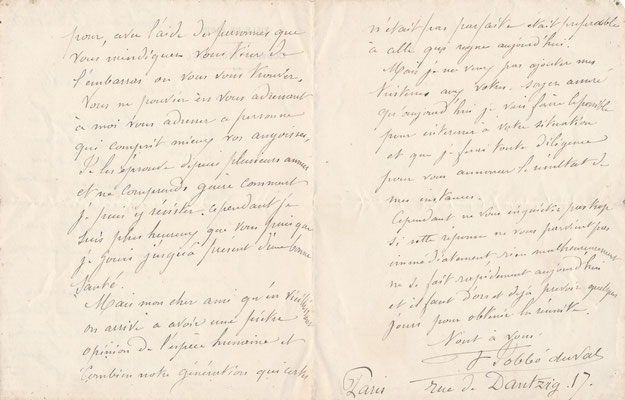 pour, avec l'aide des personnes que
vous m'indiquez vous tirer de
l'embarras où vous vous trouvez.
Vous ne pouviez en vous adressant
à moi vous adresser a personne
qui comprit mieux vos angoisses,
Je les éprouve depuis plusieurs années
et ne comprends guère comment
j'y puis résister. Cependant je
suis plus heureux que vous puisque
je jouis jusqu'à présent d'une bonne
santé.
Mais mon cher ami qu'en vieillissant
on arrive a avoir une piètre
opinion de l'espèce humaine et
combien notre génération qui certes
n'était pas parfaite était préférable
à celle qui règne aujourd'hui.
Mais je ne veux pas ajouter mes
tristesses aux vôtres. soyez assuré
qu'aujourd'hui je vais faire le possible
pour intéresser à votre situation
et que je ferai toute diligence
pour vous annoncer le résultat de
mes instances.
Cependant ne vous inquiétez pas trop
si cette réponse ne vous parvient pas
immédiatement rien malheureusement
ne se fait rapidement aujourd'hui
et il faut d'ors et déjà prévoir quelques
jours pour obtenir la réussite.
Tout à vous.
Tobbé duval
Paris rue de Dantzig 17.